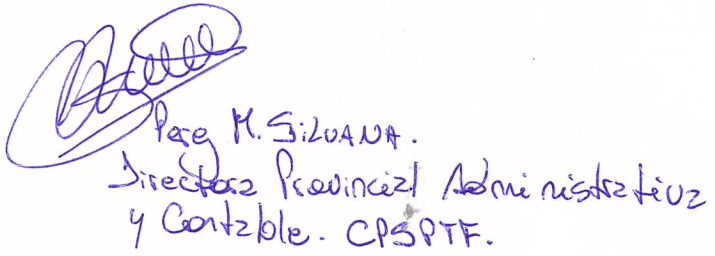 Perez M. SiLVANA.
Directora Provincial Administrativa
y Contable. CPSPTF.